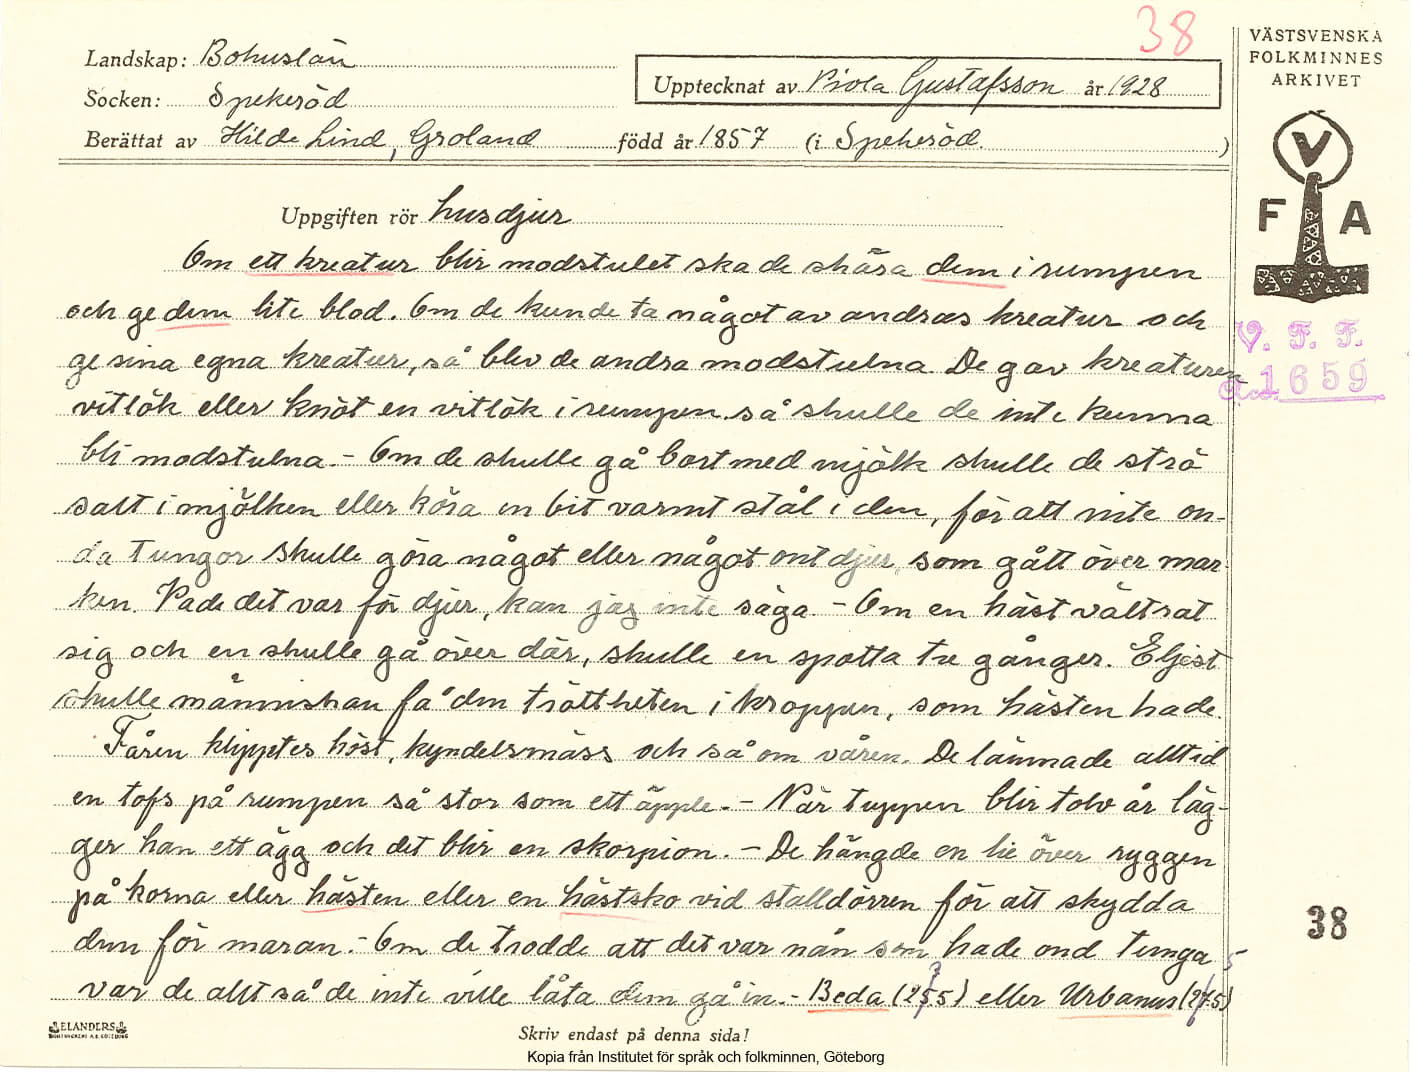 38
Landskap: Bohuslän
Socken: Spekeröd
Berättat av Hilda Lind, Groland
Upptecknat av Viola Gustafsson år 1928
född år 1857 (i Spekeröd.)
VÄSTSVENSKA
FOLKMINNES
ARKIVET
V
F A
Uppgiften rör husdjur
Om ett kreatur blir modstulet ska de skära dem i rumpen
och ge dem lite blod. Om de kunde ta något av andras kreatur och
ge sina egna kreatur, så blev de andra modstulna. De gav kreaturen
vitlök eller knöt en vitlök i rumpen så skulle de inte kunna
bli modstulna. - Om de skulle gå bort med mjölk skulle de strö
salt i mjölken eller köra en bit varmt stål i den, för att inte on-
da tungor skulle göra något eller något ont djur, som gått över mar-
ken. Vade det var för djur, kan jag inte säga. - Om en häst vältrat
sig och en skulle gå över där, skulle en spotta tre gånger. Eljest
skulle människan få den tröttheten i kroppen, som hästen hade.
Fåren klipptes höst, kyndelsmäss och så om våren. De lämnade alltid
en tofs på rumpen så stor som ett äpple. - När tuppen blir tolv år läg-
ger han ett ägg och det blir en skorpion. - De hängde en lie över ryggen
på korna eller hästen eller en hästsko vid stalldörren för att skydda
dem för maran. - Om de trodde att det var nån som hade ond tunga
var de allt så de inte ville låta dem gå in. - Beda (255) eller Urbanus (275)
V. F. F.
1659
38
ELANDERS
Skriv endast på denna sida!
Kopia från Institutet för språk och folkminnen, Göteborg